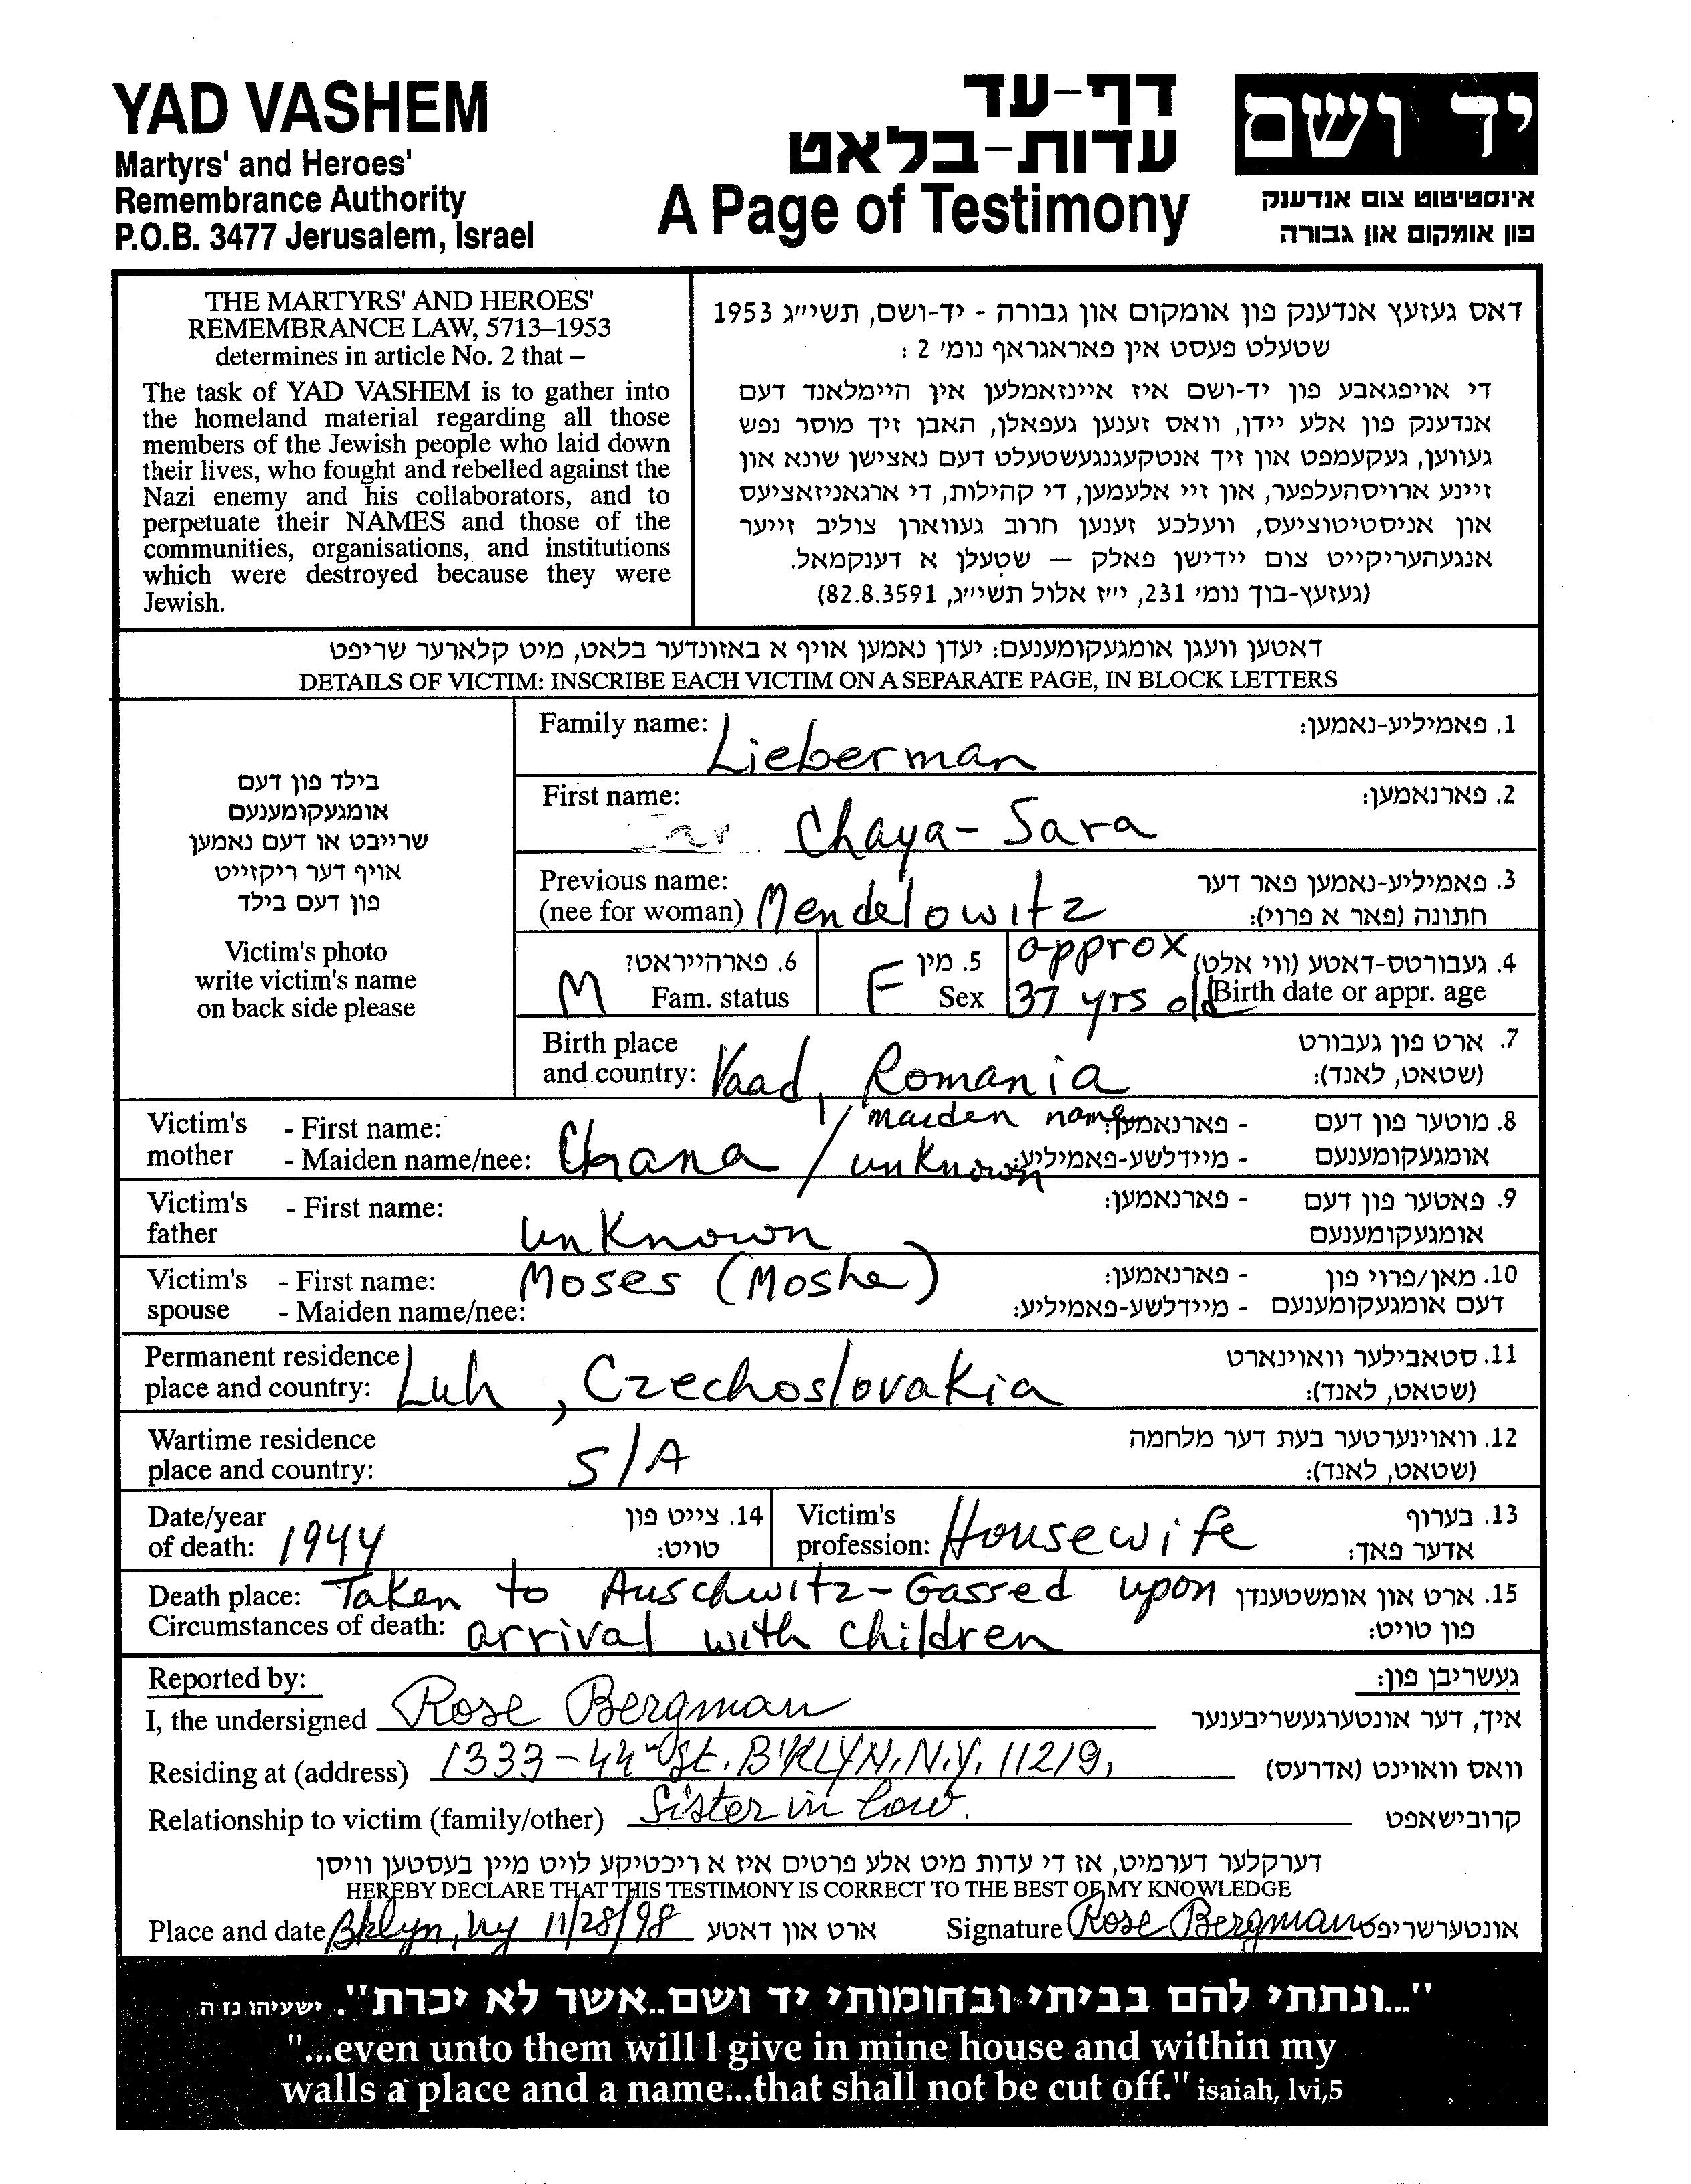 YAD VASHEM
Martyrs' and Heroes'
Remembrance Authority
P.O.B. 3477 Jerusalem, Israel
דף-עד
עדות-בלאט
A Page of Testimony
יד ושם
אינסטיטוט צום אנדענק
פון אומקום און גבורה
THE MARTYRS' AND HEROES'
REMEMBRANCE LAW, 5713–1953
determines in article No. 2 that –
The task of YAD VASHEM is to gather into
the homeland material regarding all those
members of the Jewish people who laid down
their lives, who fought and rebelled against the
Nazi enemy and his collaborators, and to
perpetuate their NAMES and those of the
communities, organisations, and institutions
which were destroyed because they were
Jewish.
דאס געזעץ אנדענק פון אומקום און גבורה - יד-ושם, תשי״ג 1953
שטעלט פעסט אין פאראגראף נומ׳ 2 :
די אויפגאבע פון יד-ושם איז איינזאמלען אין היימלאנד דעם
אנדענק פון אלע יידן, וואס זענען געפאלן, האבן זיך מוסר נפש
געווען, געקעמפט און זיך אנטקעגנגעשטעלט דעם נאצישן שונא און
זיינע ארויסהעלפער, און זיי אלעמען, די קהילות, די ארגאניזאציעס
און אניסטיטוציעס, וועלכע זענען חרוב געווארן צוליב זייער
אנגעהעריקייט צום יידישן פאלק — שטעלן א דענקמאל.
(געזעץ-בוך נומ׳ 231, י״ז אלול תשי״ג, 82.8.3591)
דאטען וועגן אומגעקומענעם: יעדן נאמען אויף א באזונדער בלאט, מיט קלארער שריפט
DETAILS OF VICTIM: INSCRIBE EACH VICTIM ON A SEPARATE PAGE, IN BLOCK LETTERS
בילד פון דעם
אומגעקומענעם
שרייבט או דעם נאמען
אויף דער ריקזייט
פון דעם בילד
Victim's photo
write victim's name
on back side please
Family name: Lieberman 1. פאמיליע-נאמען:
First name: Chaya-Sara 2. פארנאמען:
Previous name: 3. פאמיליע-נאמען פאר דער
(nee for woman) Mendelowitz חתונה (פאר א פרוי):
6. פארהייראט? 5. מין approx 4. געבורטס-דאטע (ווי אלט)
M Fam. status F Sex 37 yrs old Birth date or appr. age
Birth place 7. ארט פון געבורט
and country: Vaad, Romania (שטאט, לאנד):
Victim's - First name: / maiden name - פארנאמען: 8. מוטער פון דעם
mother - Maiden name/nee: Chana / unknown - מיידלשע-פאמיליע: אומגעקומענעם
Victim's - First name: - פארנאמען: 9. פאטער פון דעם
father unknown אומגעקומענעם
Victim's - First name: Moses (Moshe) - פארנאמען: 10. מאן/פרוי פון
spouse - Maiden name/nee: - מיידלשע-פאמיליע: דעם אומגעקומענעם
Permanent residence 11. סטאבילער וואוינארט
place and country: Luh, Czechoslovakia (שטאט, לאנד):
Wartime residence 12. וואוינערטער בעת דער מלחמה
place and country: S/A (שטאט, לאנד):
Date/year 14. צייט פון Victim's 13. בערוף
of death: 1944 טויט: profession: Housewife אדער פאך:
Death place: Taken to Auschwitz-Gassed upon 15. ארט און אומשטענדן
Circumstances of death: arrival with children פון טויט:
Reported by: געשריבן פון:
I, the undersigned Rose Bergman איך, דער אונטערגעשריבענער
Residing at (address) 1333-44th St. B'KLYN, N.Y. 11219, וואס וואוינט (אדרעס)
Relationship to victim (family/other) Sister in law. קרובישאפט
דערקלער דערמיט, אז די עדות מיט אלע פרטים איז א ריכטיקע לויט מיין בעסטען וויסן
HEREBY DECLARE THAT THIS TESTIMONY IS CORRECT TO THE BEST OF MY KNOWLEDGE
Place and date Bklyn, ny 11/28/98 ארט און דאטע Signature Rose Bergman אונטערשריפט
"...ונתתי להם בביתי ובחומותי יד ושם..אשר לא יכרת". ישעיהו נו ה
"...even unto them will I give in mine house and within my
walls a place and a name...that shall not be cut off." isaiah, lvi,5